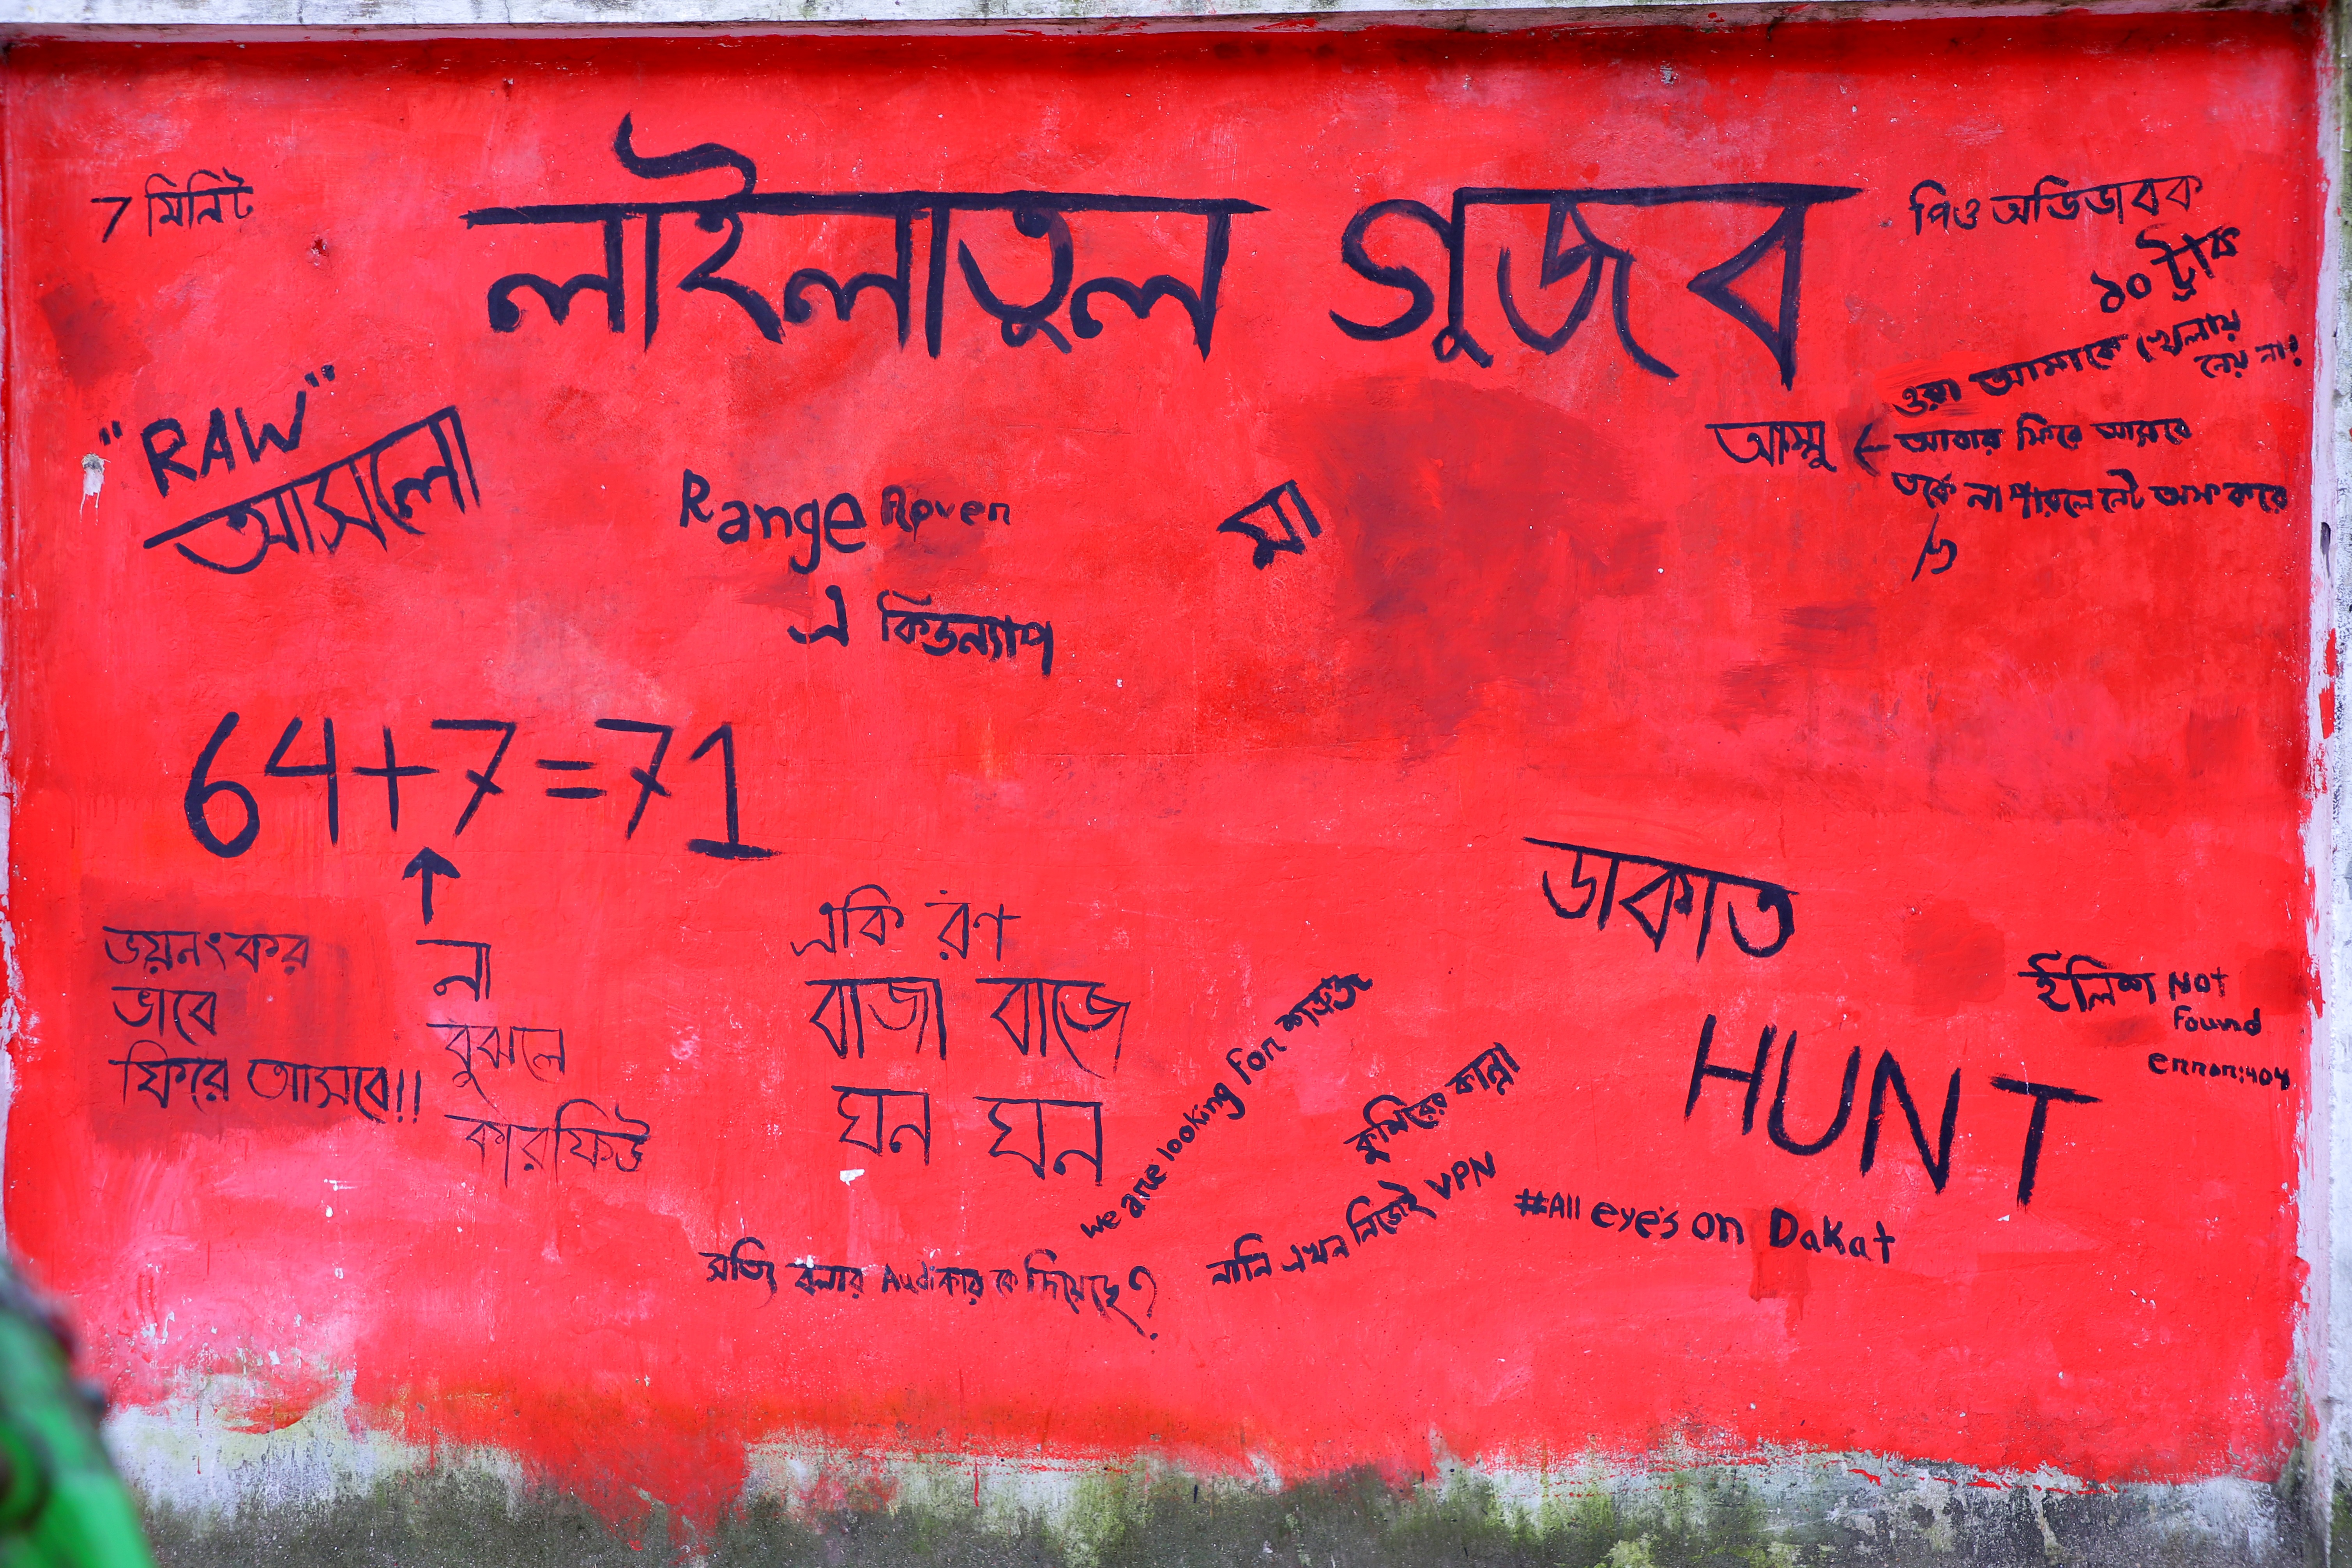 লাইলাতুল গুজব
7 মিনিট
পিও অভিভাবক
১০ ট্রাক
"RAW"
আসলো
Range Rover
এ কিডন্যাপ
মা
ওরা আমাকে খেলায়
নেয় না!
আম্মু ← আবার ফিরে আসবে
তর্কে না পারলে নেট অফ করে
64+7=71
↑
ভয়নংকর
ভাবে
ফিরে আসবে!!
না
বুঝলে
কারফিউ
একি রণ
বাজা বাজে
ঘন ঘন
We are looking for শত্রুজ
কুমিরের কান্না
নানি এখন নিজেই VPN
সত্যি বলার Audiকার কে দিয়েছে?
ডাকাত
HUNT
#All eye's on Dakat
ইলিশ Not
Found
error:404